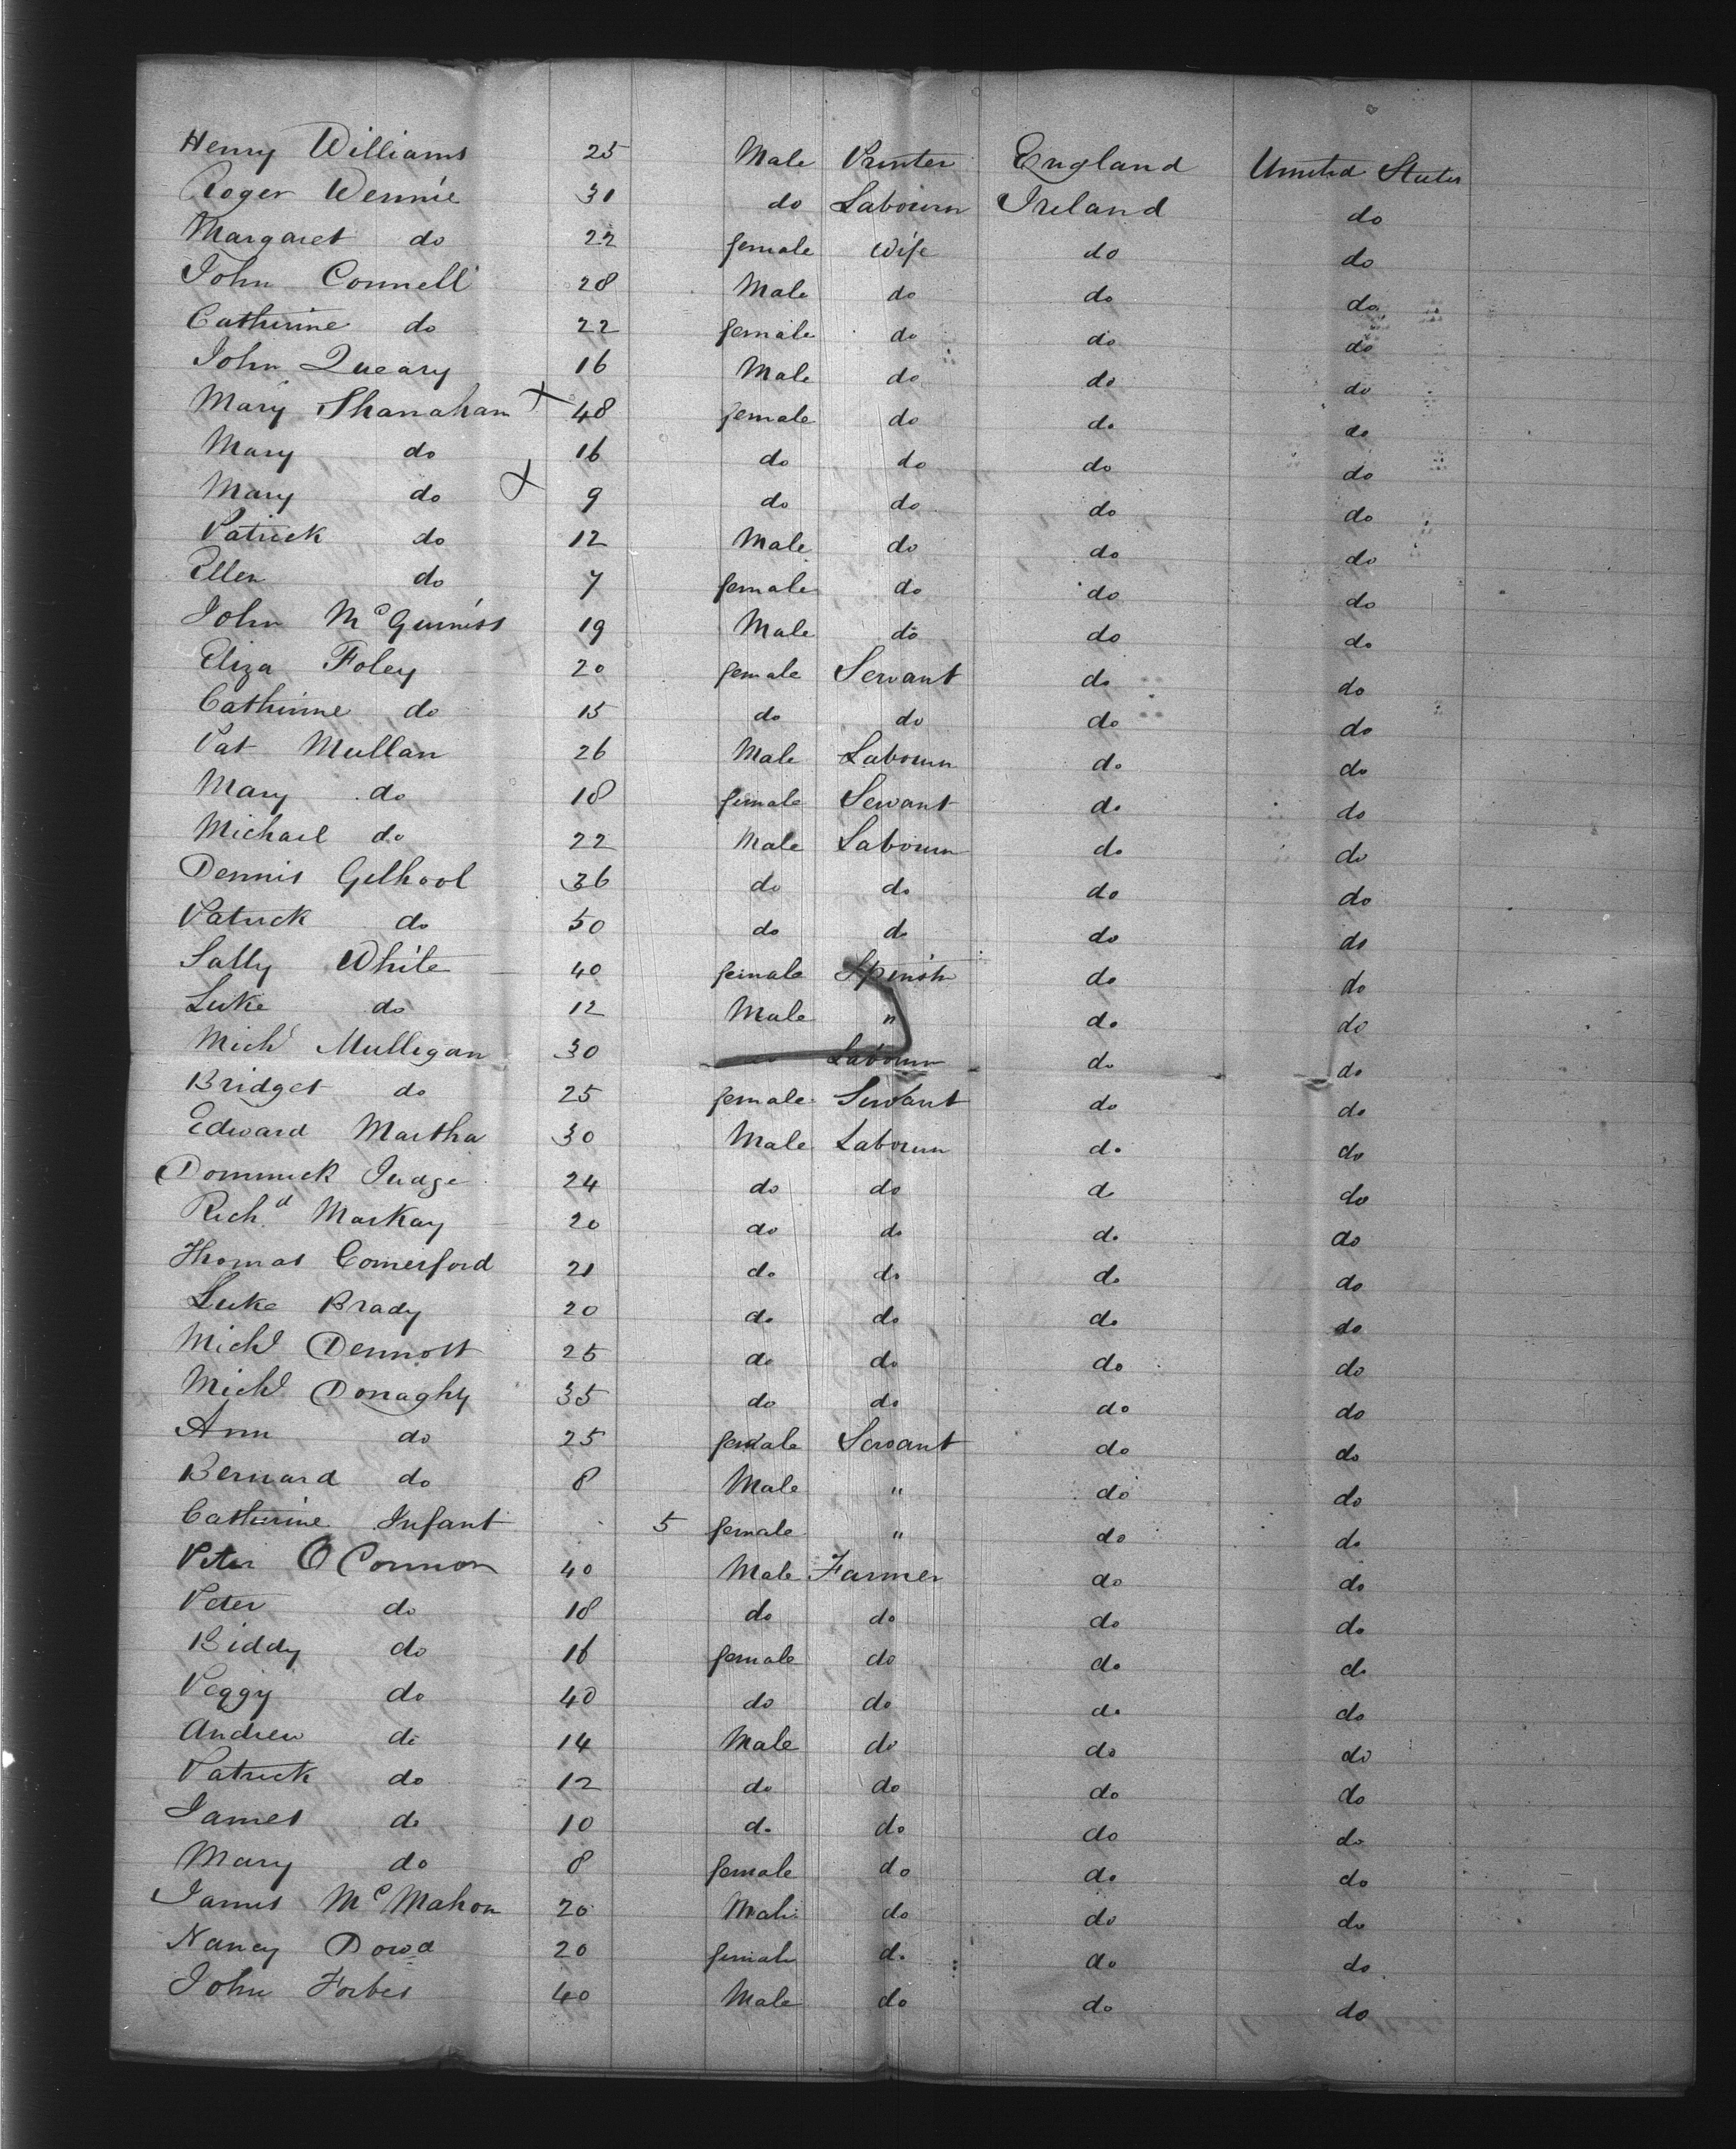 Henry Williams 25 Male Printer England United States
Roger Dennie 30 do Labourer Ireland do
Margaret do 22 female Wife do do
John Connell 28 Male do do do
Catherine do 22 female do do do
John Queary 16 Male do do do
Mary Shanahan x 48 female do do do
Mary do 16 do do do do
Mary do x 9 do do do do
Patrick do 12 Male do do do
Ellen do 7 female do do do
John McGuiness 19 Male do do do
Eliza Foley 20 female Servant do do
Catherine do 15 do do do do
Pat Mullan 26 Male Labourer do do
Mary do 18 female Servant do do
Michael do 22 Male Labourer do do
Dennis Gilhool 36 do do do do
Patrick do 50 do do do do
Sally White 40 female Spinstr do do
Luke do 12 Male " do do
Michl Mulligan 30 do Labourer do do
Bridget do 25 female Servant do do
Edward Martha 30 Male Labourer do do
Dominick Judge 24 do do do do
Richd Markay 20 do do do do
Thomas Comerford 21 do do do do
Luke Brady 20 do do do do
Michl Dermott 25 do do do do
Michl Donaghy 35 do do do do
Ann do 25 female Servant do do
Bernard do 8 Male " do do
Catherine Infant 5 female " do do
Peter O Connor 40 Male Farmer do do
Peter do 18 do do do do
Biddy do 16 female do do do
Peggy do 40 do do do do
Andrew do 14 Male do do do
Patrick do 12 do do do do
James do 10 do do do do
Mary do 8 female do do do
James McMahon 20 Male do do do
Nancy Dowd 20 female do do do
John Forbes 40 Male do do do